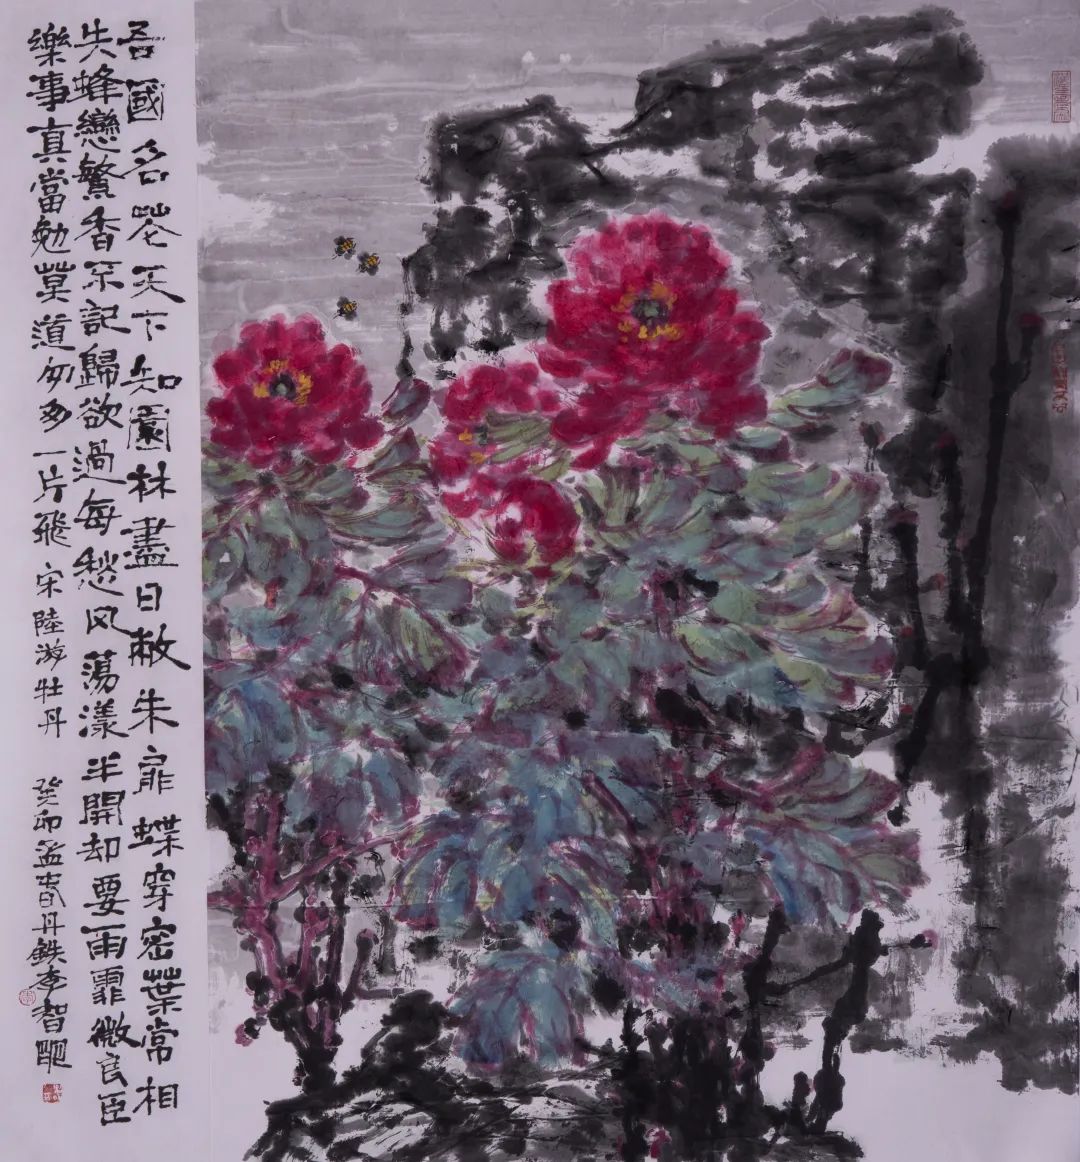 吾國名花天下知園林盡日敞朱扉蝶穿密葉常相
失蜂戀繁香不記歸欲過每愁风蕩漾半開却要雨霏微良臣
樂事真當勉莫道匆匆一片飛 宋陸游牡丹 癸卯孟春丹鉄李智